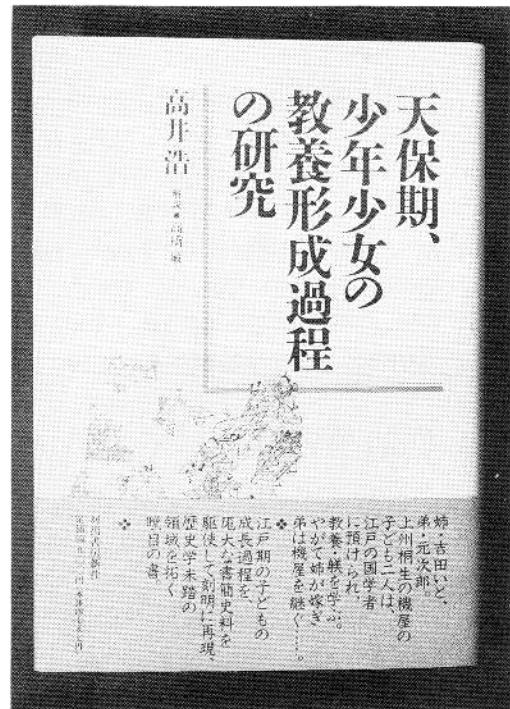 天保期、
少年少女の
教養形成過程
の研究
高井浩
解説●高橋敏
姉・吉田いと、
弟・元次郎。
上州桐生の機屋の
子ども二人は、
江戸の国学者
に預けられ、
教養・躾を学ぶ。
やがて姉が嫁ぎ
弟は機屋を継ぐ……。
❖
江戸期の子どもの
成長過程を、
厖大な書簡史料を
駆使して刻明に再現、
歴史学未踏の
領域を拓く
瞠目の書。
❖
河出書房新社